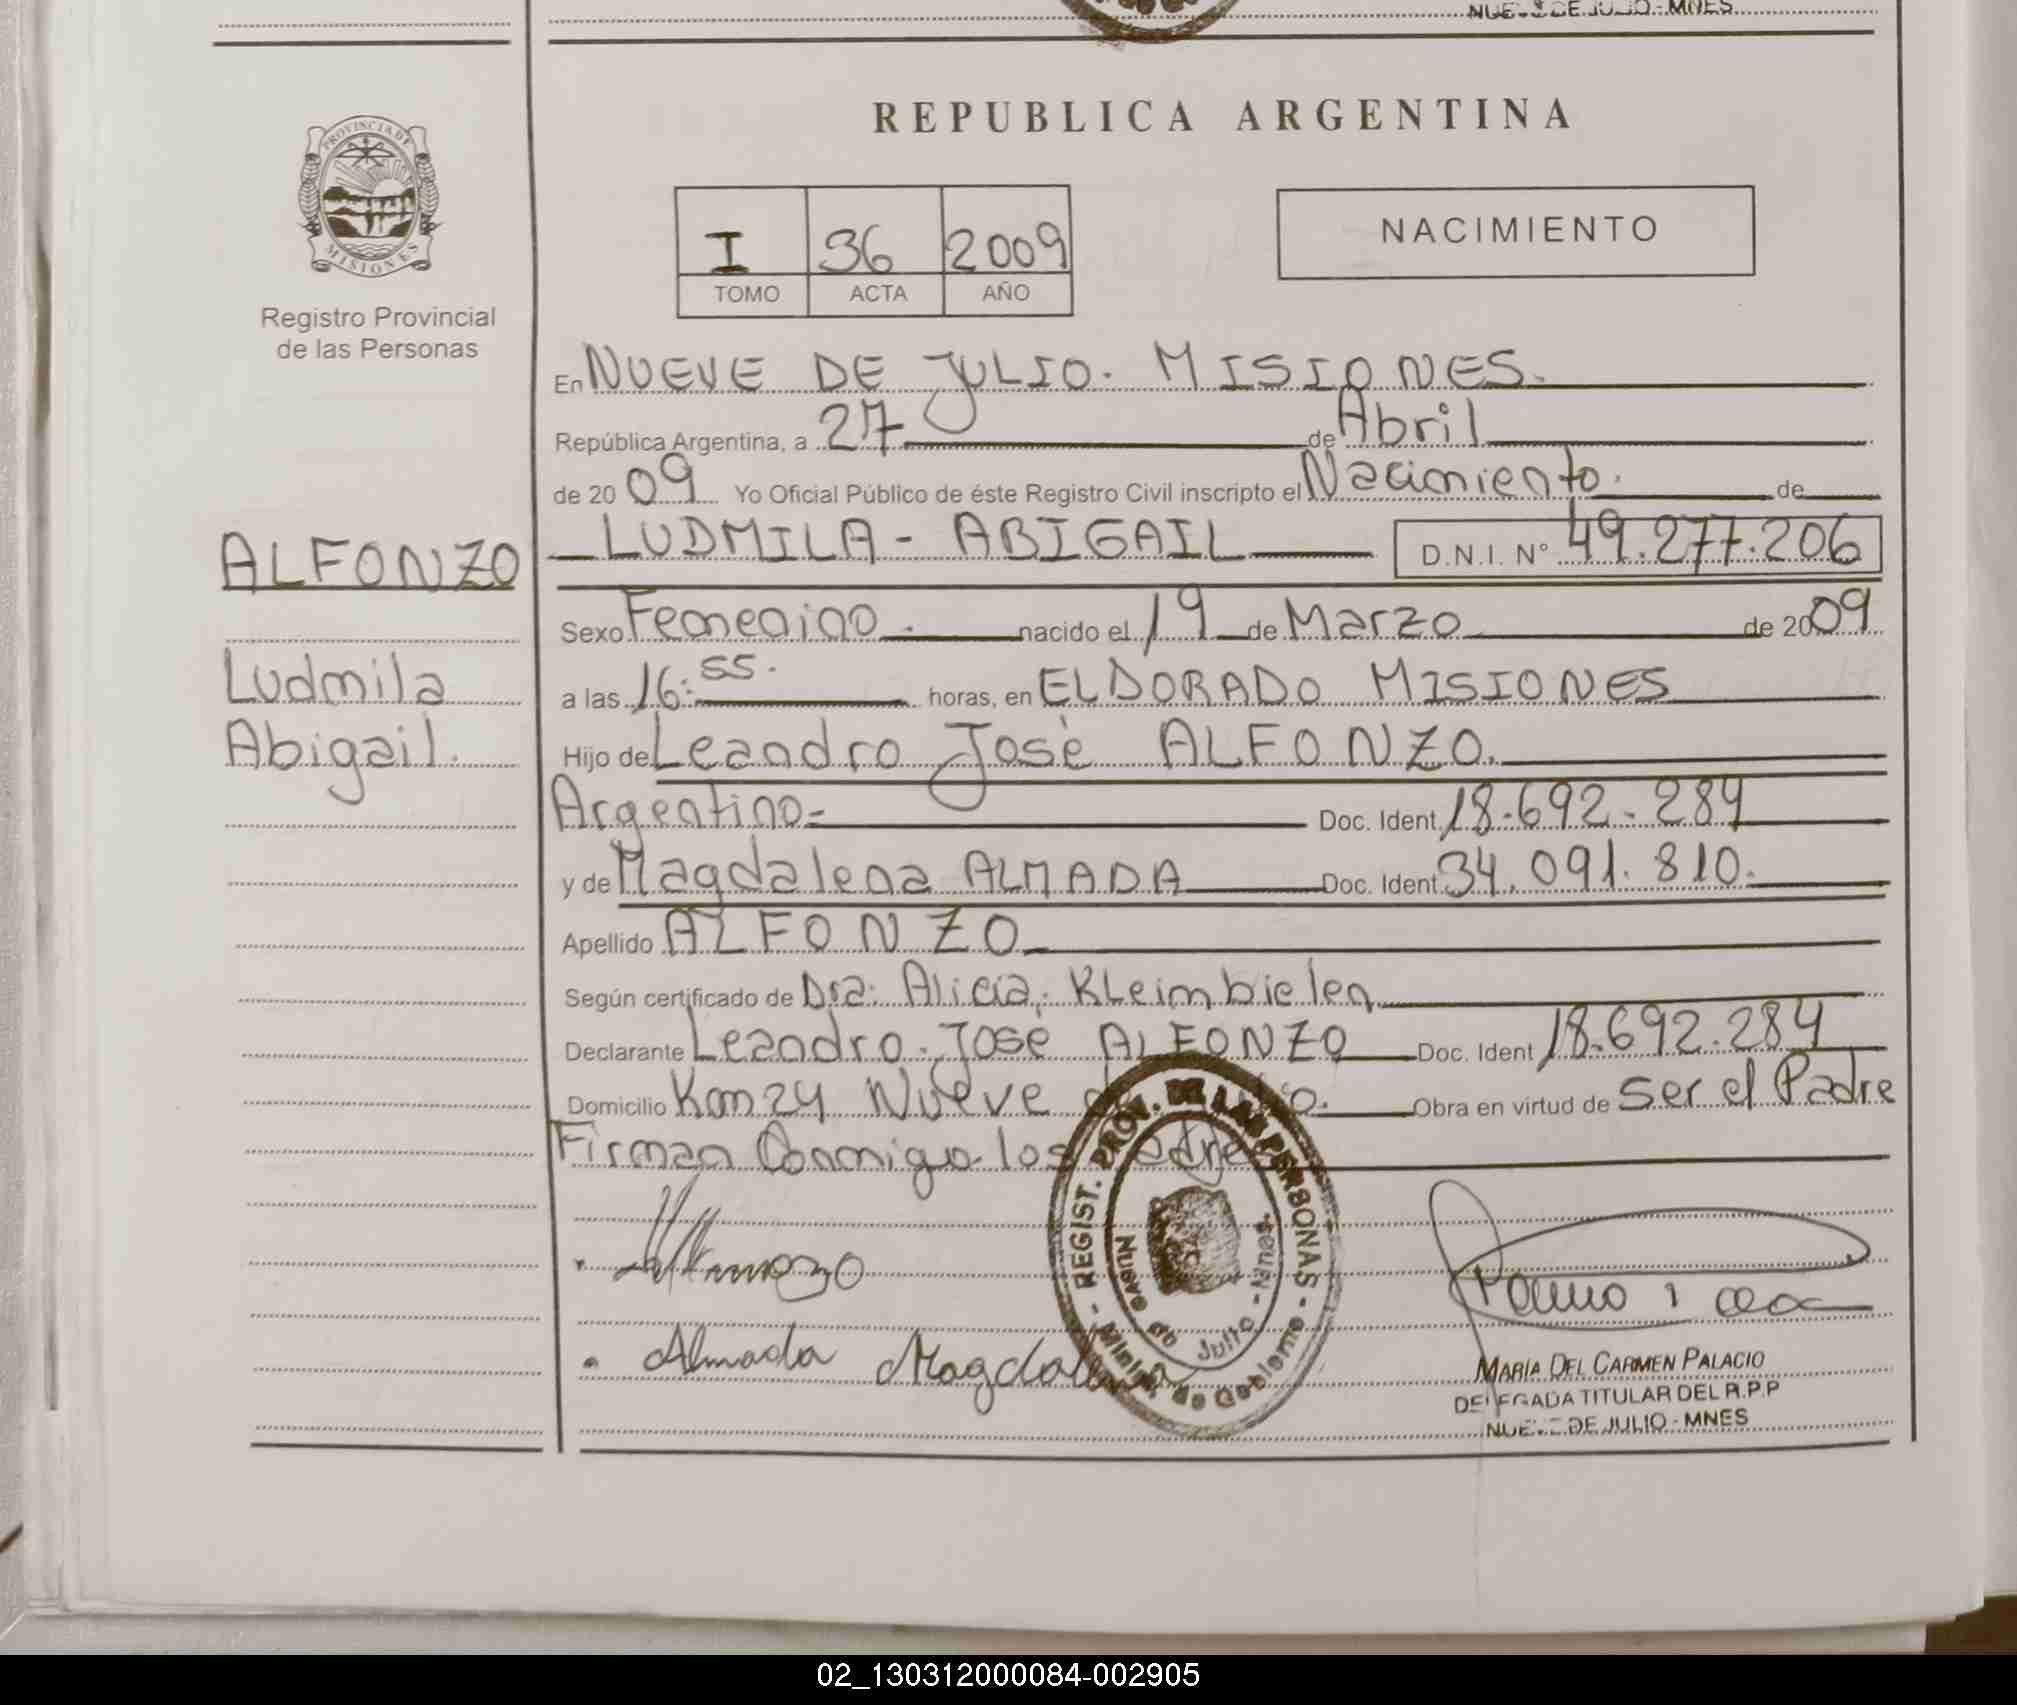 NUEVE DE JULIO - MNES
REPUBLICA ARGENTINA
PROVINCIA DE
MISIONES
Registro Provincial
de las Personas
I 36 2009
TOMO ACTA AÑO
NACIMIENTO
En NUEVE DE JULIO. MISIONES.
República Argentina, a 27 de Abril
de 2009 Yo Oficial Público de éste Registro Civil inscripto el Nacimiento. de
ALFONZO
LUDMILA - ABIGAIL D.N.I. N° 49.277.206
Sexo Femenino. nacido el 19 de Marzo de 2009
Ludmila
Abigail.
a las 16:55. horas, en ELDORADO MISIONES
Hijo de Leandro José ALFONZO.
Argentino= Doc. Ident. 18.692.284
y de Magdalena ALMADA Doc. Ident. 34.091.810.
Apellido ALFONZO
Según certificado de Dra. Alicia. KLeimbielen
Declarante Leandro. José ALFONZO Doc. Ident 18.692.284
Domicilio Km 24 Nueve Obra en virtud de ser el Padre
Firman Conmigo los
REGIST. PROV. DE LAS PERSONAS - Minist. de Gobierno -
Nueve de Julio - Mnes.
Almada Magdalena
MARIA DEL CARMEN PALACIO
DELEGADA TITULAR DEL R.P.P
NUEVE DE JULIO - MNES
02_130312000084-002905